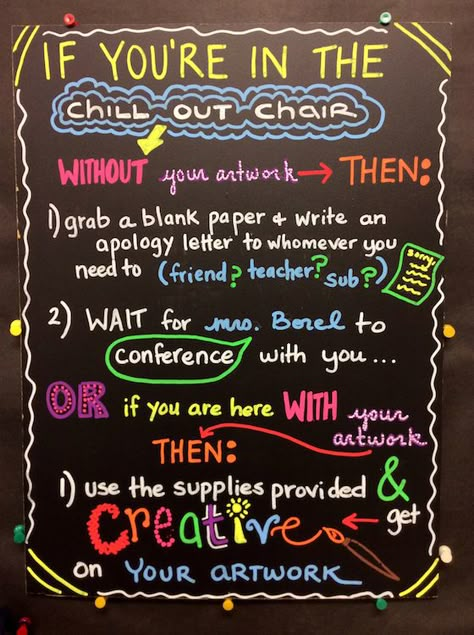 IF YOU'RE IN THE
CHILL OUT CHAIR
WITHOUT your artwork → THEN:
1) grab a blank paper & write an
apology letter to whomever you
need to (friend? teacher? sub?)
sorry
2) WAIT for mrs. Borel to
conference with you...
OR if you are here WITH your
artwork
THEN:
1) use the supplies provided &
get
Creative
on YOUR ARTWORK